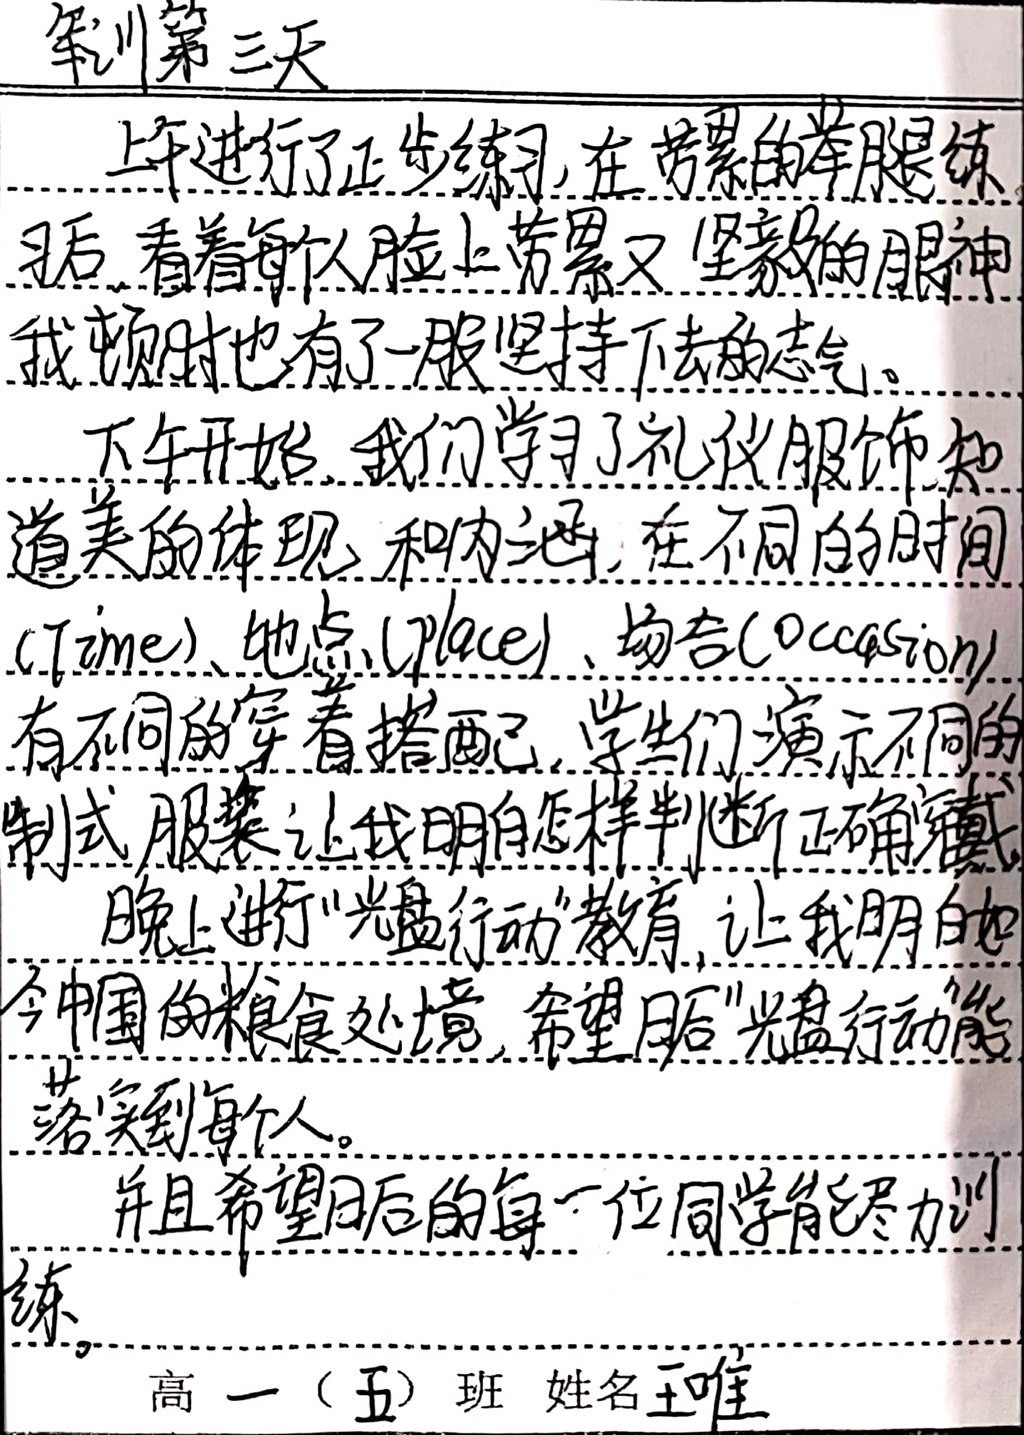 军训第三天
上午进行了正步练习,在劳累的举腿练
习后,看着每个人脸上劳累又坚毅的眼神
我顿时也有了一股坚持下去的志气。
下午开始,我们学习了礼仪服饰,知
道美的体现,和内涵,在不同的时间
(Time)、地点(place)、场合(Occasion)
有不同的穿着搭配,学生们演示不同的
制式服装让我明白怎样判断正确穿戴,
晚上进行“光盘行动”教育,让我明白如
今中国的粮食处境,希望日后“光盘行动”能
落实到每个人。
并且希望日后的每一位同学能尽力训
练。
高一(五)班 姓名王唯